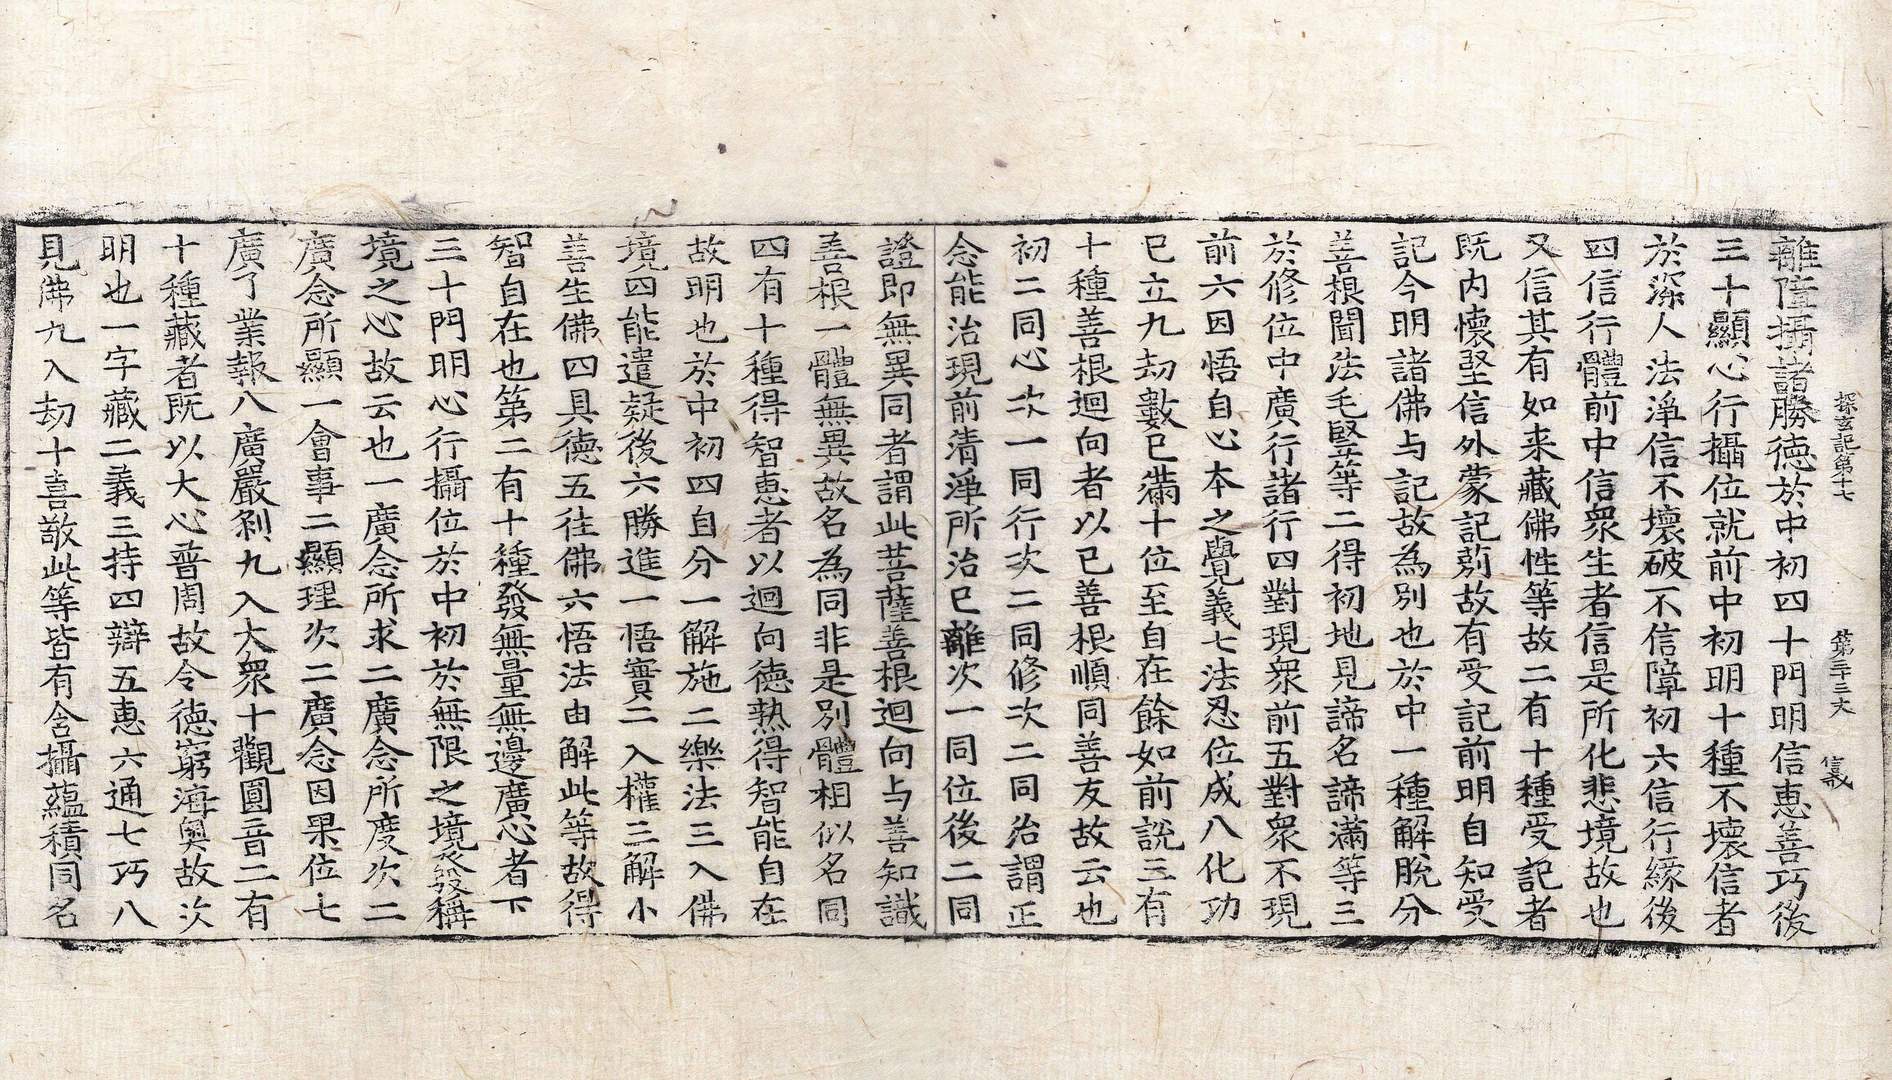 探玄記第十七　第三十三丈　信義
離障攝諸勝德於中初四十門明信惠善巧後
三十顯心行攝位就前中初明十種不壞信者
於深人法淨信不壞破不信障初六信行緣後
四信行體前中信衆生者信是所化悲境故也
又信其有如来藏佛性等故二有十種受記者
既内懷堅信外蒙記莂故有受記前明自知受
記今明諸佛与記故為別也於中一種解脫分
善根聞法毛竪等二得初地見諦名諦滿等三
於修位中廣行諸行四對現衆前五對衆不現
前六因悟自心本之覺義七法忍位成八化功
已立九劫數已滿十位至自在餘如前說三有
十種善根迴向者以已善根順同善友故云也
初二同心次一同行次二同修次二同治謂正
念能治現前清淨所治已離次一同位後二同
證即無異同者謂此菩薩善根迴向与善知識
善根一體無異故名為同非是別體相似名同
四有十種得智惠者以迴向德熟得智能自在
故明也於中初四自分一解施二樂法三入佛
境四能遣疑後六勝進一悟實二入權三解小
善生佛四具德五往佛六悟法由解此等故得
智自在也第二有十種發無量無邊廣心者下
三十門明心行攝位於中初於無限之境發稱
境之心故云也一廣念所求二廣念所度次二
廣念所顯一會事二顯理次二廣念因果位七
廣了業報八廣嚴剎九入大衆十觀圓音二有
十種藏者既以大心普周故令德窮海奥故次
明也一字藏二義三持四辯五惠六通七巧八
見佛九入劫十喜敬此等皆有含攝蘊積同名